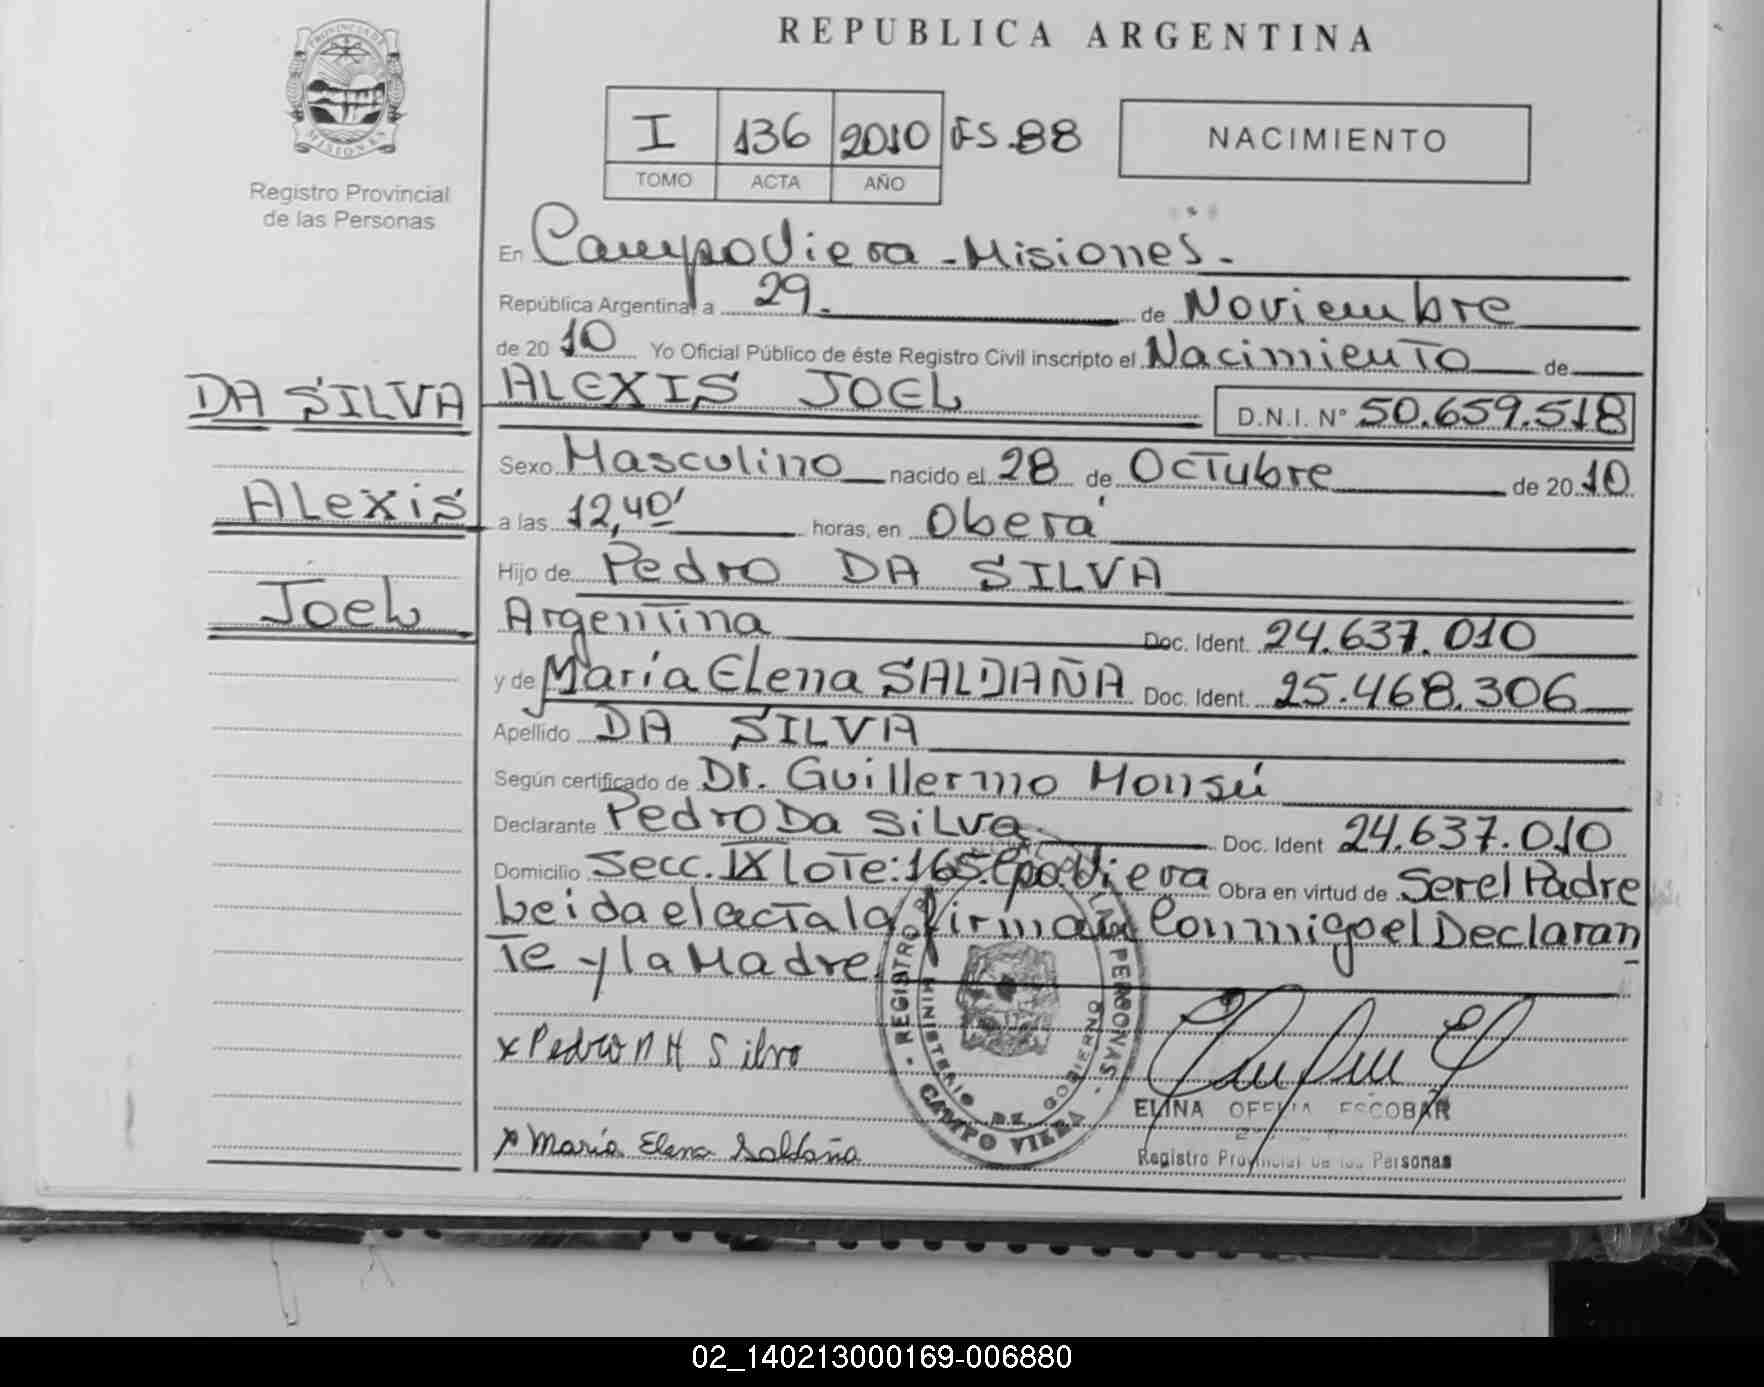 REPUBLICA ARGENTINA
PROVINCIA DE
MISIONES
Registro Provincial
de las Personas
I 136 2010 FS.88
TOMO ACTA AÑO
NACIMIENTO
En Campo Viera - Misiones.-
República Argentina, a 29.- de Noviembre
de 2010 Yo Oficial Público de éste Registro Civil inscripto el Nacimiento de
DA SILVA ALEXIS JOEL D.N.I. N° 50.659.518
Sexo Masculino nacido el 28 de Octubre de 2010
Alexis
a las 12,40' horas, en Oberá
Hijo de Pedro DA SILVA
Joel
Argentina Doc. Ident. 24.637.010
y de María Elena SALDAÑA Doc. Ident. 25.468.306
Apellido DA SILVA
Según certificado de Dr. Guillermo Monsú
Declarante Pedro Da Silva Doc. Ident 24.637.010
Domicilio Secc. IX Lote: 165. Cpo. Viera Obra en virtud de Ser el Padre
Leida el acta la firman Conmigo el Declaran
te y la Madre
x Pedro DA Silva
x María Elena Saldaña
REGISTRO PERSONAS
MINISTERIO DE GOBIERNO
CAMPO VIERA
ELINA OFELIA ESCOBAR
Registro Provincial de las Personas
02_140213000169-006880